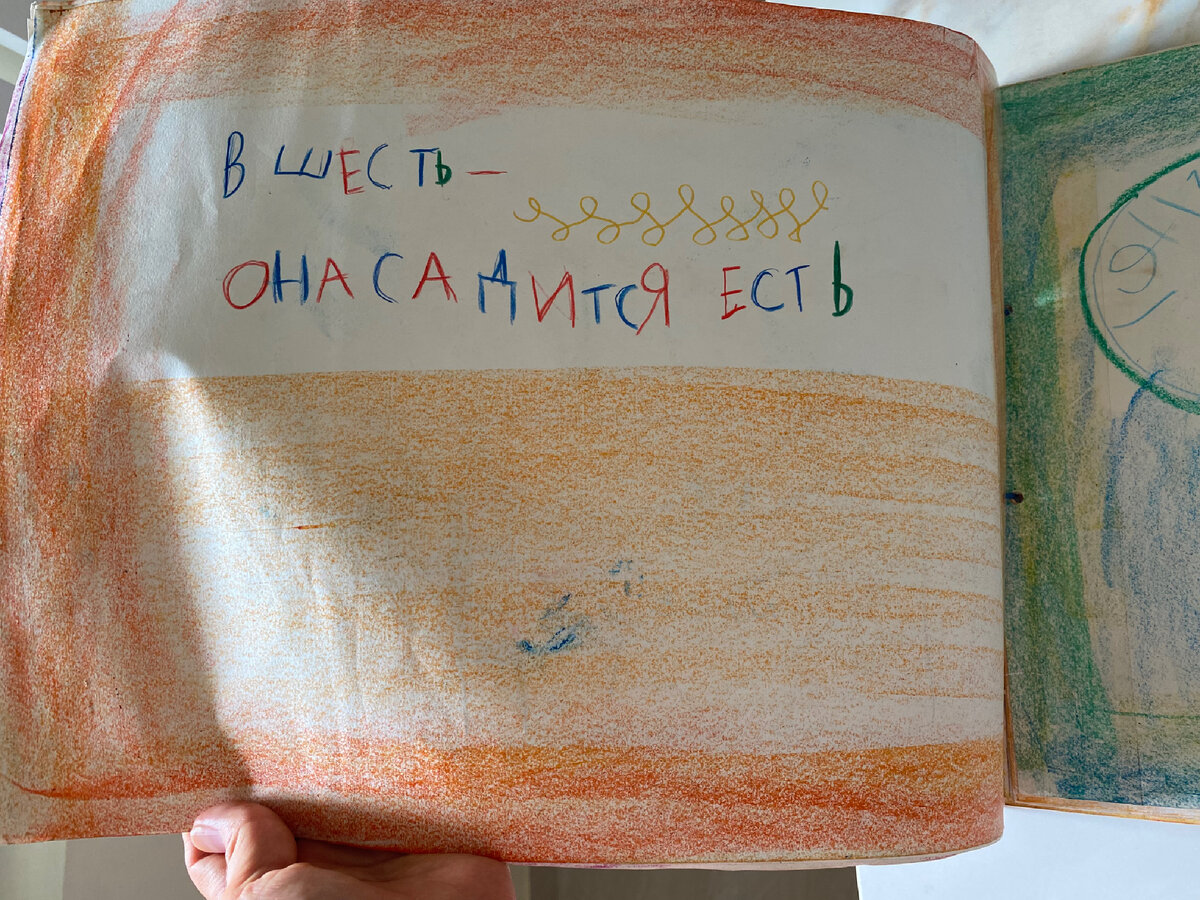 В ШЕСТЬ —
ОНА САДИТСЯ ЕСТЬ